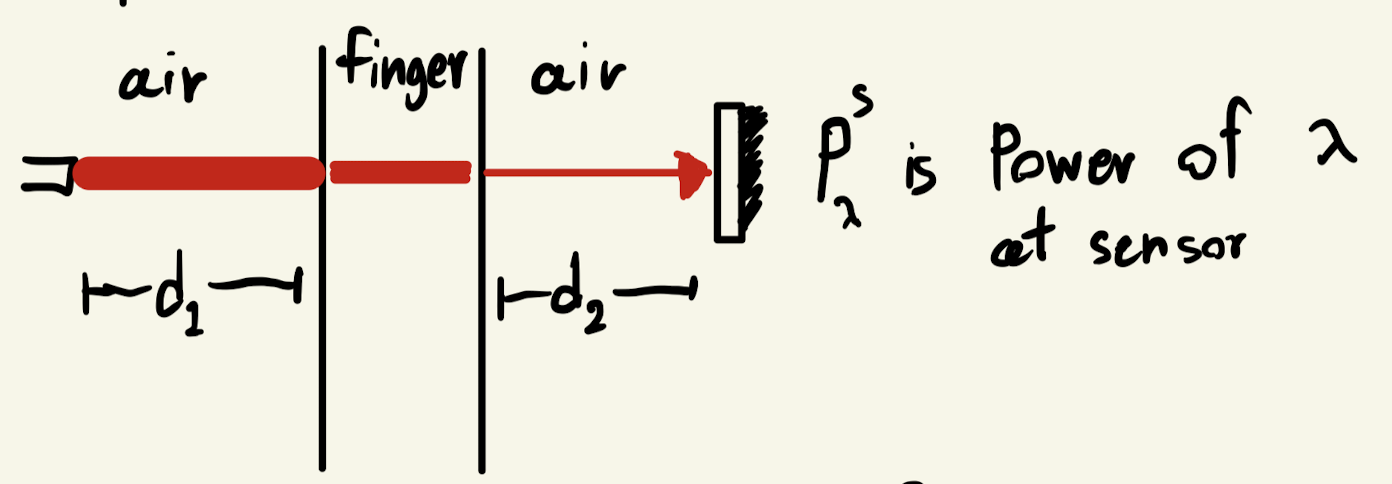 air
finger
air
P^s_λ is Power of λ
at sensor
d_1
d_2